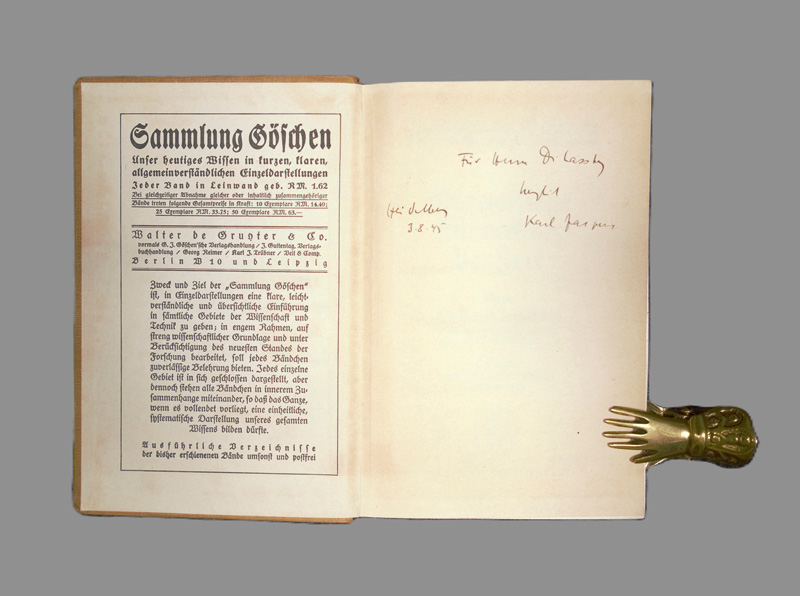 Sammlung Göschen
Unser heutiges Wissen in kurzen, klaren,
allgemeinverständlichen Einzeldarstellungen
Jeder Band in Leinwand geb. RM. 1.62
Bei gleichzeitiger Abnahme gleicher oder inhaltlich zusammengehöriger
Bände treten folgende Gesamtpreise in Kraft: 10 Exemplare RM. 14.40;
25 Exemplare RM. 33.75; 50 Exemplare RM. 63.—
Walter de Gruyter & Co.
vormals G. J. Göschen'sche Verlagshandlung / J. Guttentag, Verlags-
buchhandlung / Georg Reimer / Karl J. Trübner / Veit & Comp.
Berlin W 10 und Leipzig
Zweck und Ziel der „Sammlung Göschen“
ist, in Einzeldarstellungen eine klare, leicht-
verständliche und übersichtliche Einführung
in sämtliche Gebiete der Wissenschaft und
Technik zu geben; in engem Rahmen, auf
streng wissenschaftlicher Grundlage und unter
Berücksichtigung des neuesten Standes der
Forschung bearbeitet, soll jedes Bändchen
zuverlässige Belehrung bieten. Jedes einzelne
Gebiet ist in sich geschlossen dargestellt, aber
dennoch stehen alle Bändchen in innerem Zu-
sammenhange miteinander, so daß das Ganze,
wenn es vollendet vorliegt, eine einheitliche,
systematische Darstellung unseres gesamten
Wissens bilden dürfte.
Ausführliche Verzeichnisse
der bisher erschienenen Bände umsonst und postfrei
Für Herrn Dr
Heidelberg
3.8.45
Karl Jaspers